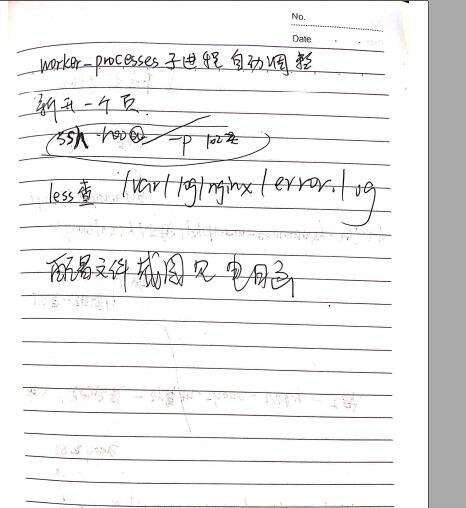 No.
Date
worker-processes 子进程自动调整
新开一个页
ssh -p
less 查 /var/log/nginx/error.log
配置文件截图见电脑